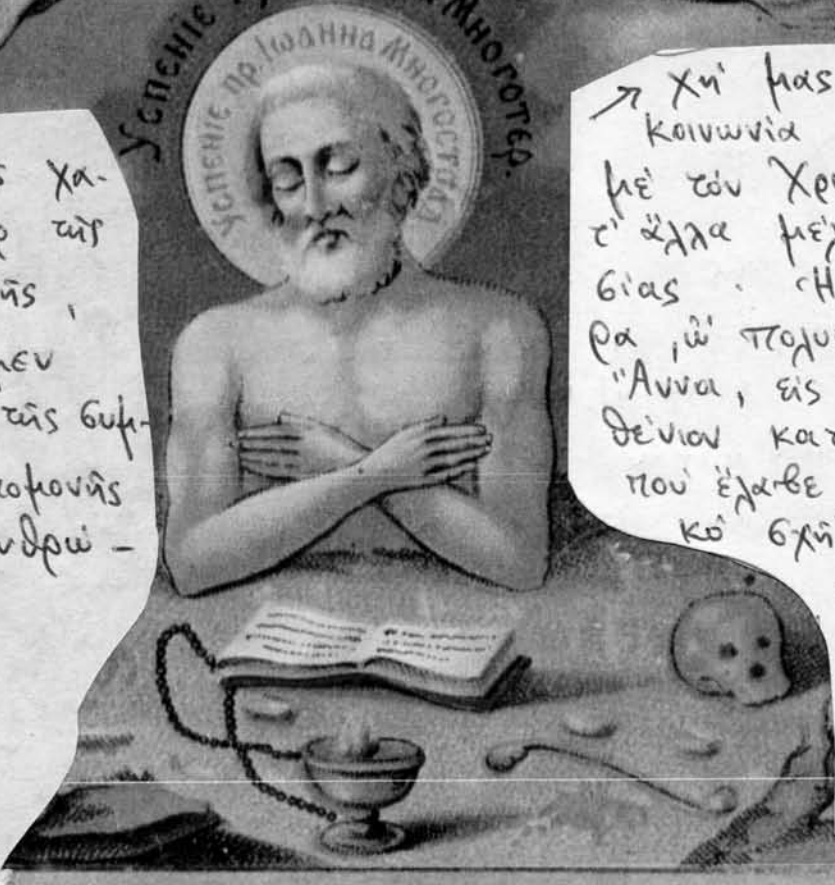 Успенїе
Многотер.
Успенїе пр. Іωанна Многострал
χα-
τῆς
ῆς,
μεν
τῆς συμ-
πομονῆς
νθρώ-
χή μας
κοινωνία
μέ τόν Χρι
τ' ἄλλα μέλ
σίας . Ἡ
ρα, ὦ πολυ
Ἄννα, εἰς
θένιον κατ
πού ἔλαβε
κό σχῆ